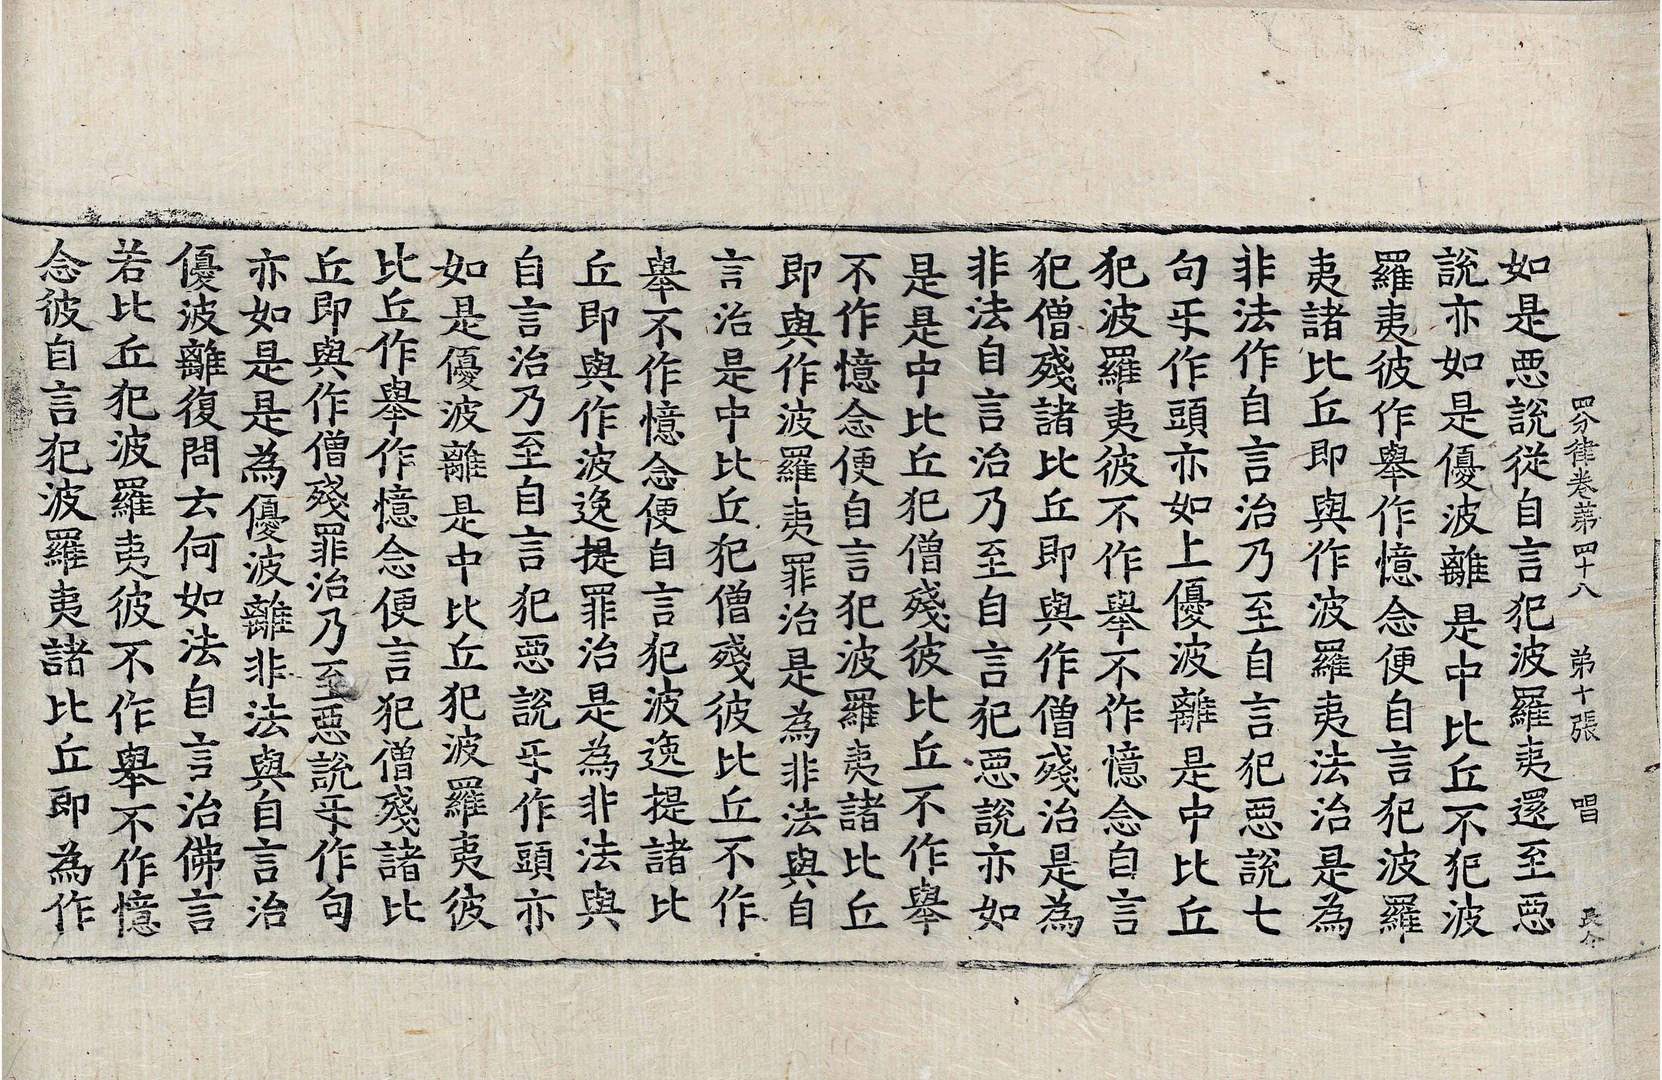 四分律卷第四十八 第十張 唱 長今
如是惡說從自言犯波羅夷還至惡
說亦如是優波離是中比丘不犯波
羅夷彼作舉作憶念便自言犯波羅
夷諸比丘即與作波羅夷法治是為
非法作自言治乃至自言犯惡說七
句乎作頭亦如上優波離是中比丘
犯波羅夷彼不作舉不作憶念自言
犯僧殘諸比丘即與作僧殘治是為
非法自言治乃至自言犯惡說亦如
是是中比丘犯僧殘彼比丘不作舉
不作憶念便自言犯波羅夷諸比丘
即與作波羅夷罪治是為非法與自
言治是中比丘犯僧殘彼比丘不作
舉不作憶念便自言犯波逸提諸比
丘即與作波逸提罪治是為非法與
自言治乃至自言犯惡說乎作頭亦
如是優波離是中比丘犯波羅夷彼
比丘作舉作憶念便言犯僧殘諸比
丘即與作僧殘罪治乃至惡說乎作句
亦如是是為優波離非法與自言治
優波離復問云何如法自言治佛言
若比丘犯波羅夷彼不作舉不作憶
念彼自言犯波羅夷諸比丘即為作